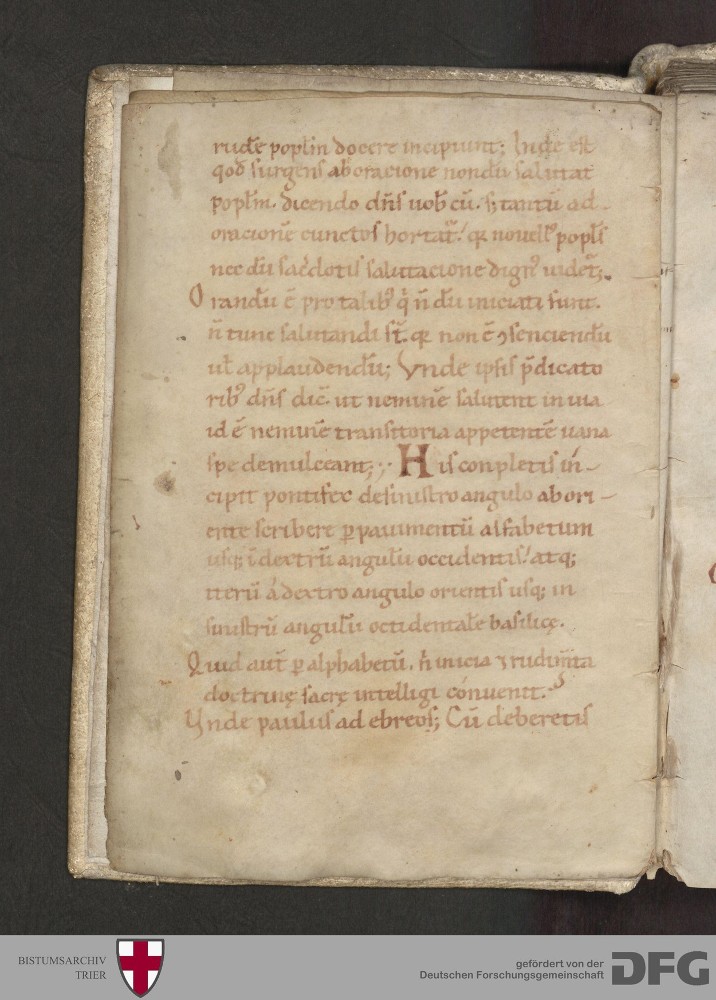 rudē poplm docere incipiunt; Inde est
qod surgens aboracione nondū salutat
poplm. dicendo dn̄s uob̄ cū. s; tantū ad-
oracionē cunctos hortat᷑. qr nouell᷒ popl᷒
nec dū sac̄dotis salutacione dign᷒ uidet᷑;
Orandū ē pro talib᷒ q̄ n̄ dū iniciati sunt.
n̄ tunc salutandi st̄. qr non ē ꝯsenciendū
ut applaudendū; Vnde ipsis p̄dicato
rib᷒ dn̄s dic̄. ut neminē salutent in uia
id ē neminē transitoria appetentē uana
spe demulceant; His conpletis in-
cipit pontifex desinistro angulo ab ori-
ente scribere ꝑ pauimentū alfabetum
usq; ī dextrū angulū occidentis. atq;
iterū á dextro angulo orientis usq; in
sinistrū angulū occidentale basilicę.
Quid aut̄ ꝑ alphabetū. n̄ inicia ⁊ rudim̄ta
doctrinę sacrę intelligi conuenit.
Vnde paulus ad ebreos; Cū deberetis
BISTUMSARCHIV
TRIER
gefördert von der
Deutschen Forschungsgemeinschaft
DFG